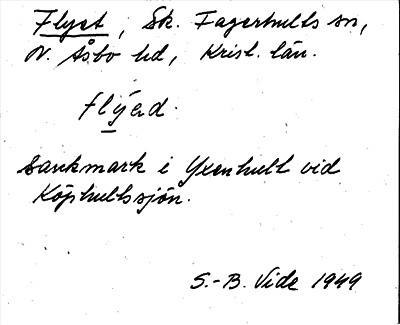 Flyet, Sk. Fagerhults sn,
N. Åsbo hd, Krist. län.
flýed.
Sankmark i Yxenhult vid
Köphultssjön.
S.-B. Vide 1949